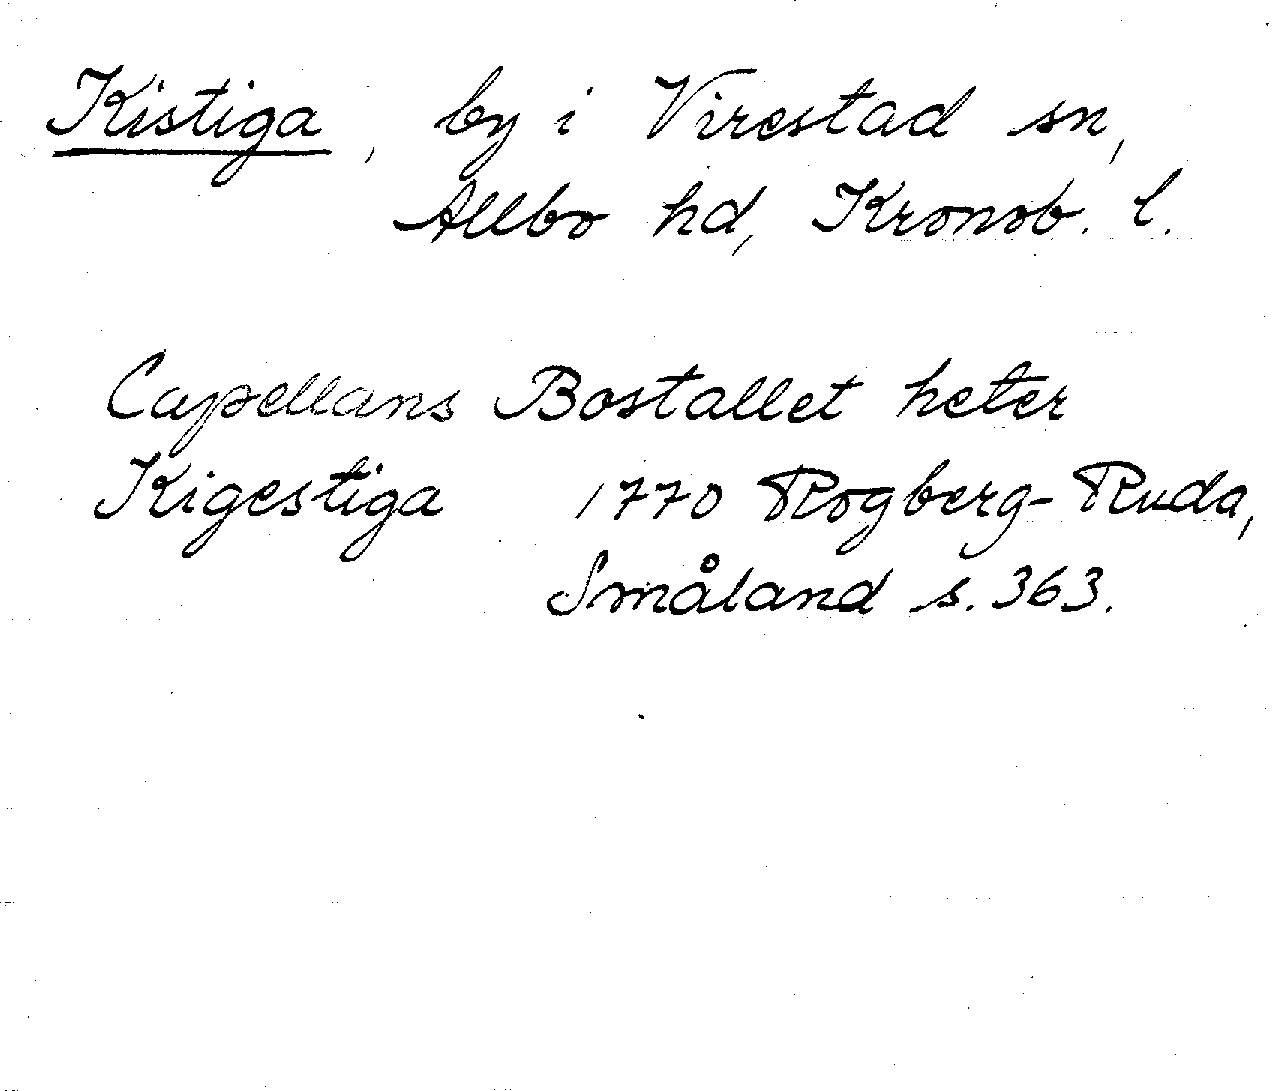 Kistiga, by i Virestad sn,
Allbo hd, Kronob. l.
Capellans Bostallet heter
Kigestiga 1770 Rogberg-Ruda,
Småland s. 363.